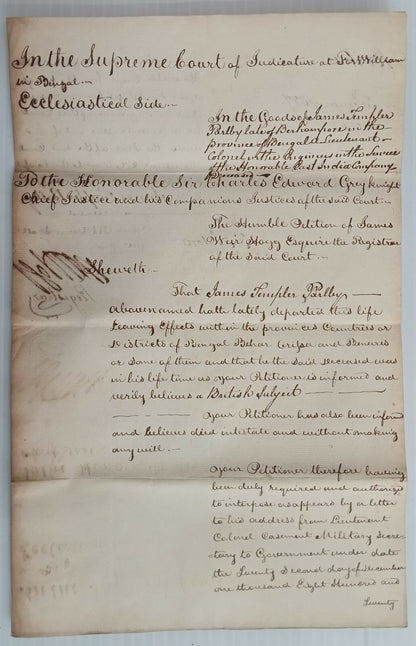 In the Supreme Court of Judicature at Fort William
in Bengal
Ecclesiastical Side
In the Goods of James Templer
Parlby late of Berhampore in the
province of Bengal a Lieutenant
Colonel in the Engineers in the Service
of the Honorable East India Company
deceased
To the Honorable Sir Charles Edward Grey Knight
Chief Justice and his Companions Justices of the said Court
The Humble Petition of James
Weir Hogg Esquire the Registrar
of the Said Court
Sheweth
That James Templer Parlby
abovenamed hath lately departed this life
Leaving Effects within the provinces Countries or
Districts of Bengal Behar Orissa and Benares
or Some of them and that he the Said deceased was
in his life time as your Petitioner is informed and
verily believes a British Subject
your Petitioner has also been inform
and believes died intestate and without making
any will
your Petitioner therefore having
been duly required and authorized
to interpose as appears by a letter
to his address from Lieutenant
Colonel Casement Military Secre-
tary to Government under date
the Twenty Second day of December
one thousand Eight Hundred and
Twenty